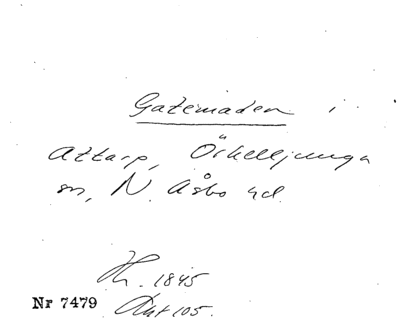 Gatemaden i
Attarp, Örkelljunga
sn, N. Åsbo hd.
Hr. 1845
Akt 105.
Nr 7479